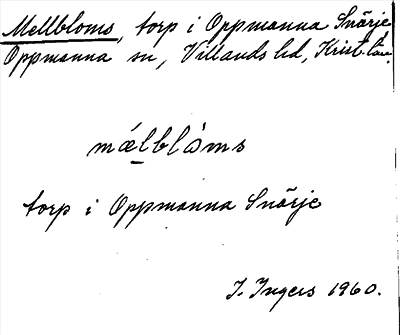 Mellbloms, torp i Oppmanna Snärje
Oppmanna sn, Villands hd, Krist. län.
mǽlblòms
torp i Oppmanna Snärje
I. Ingers 1960.